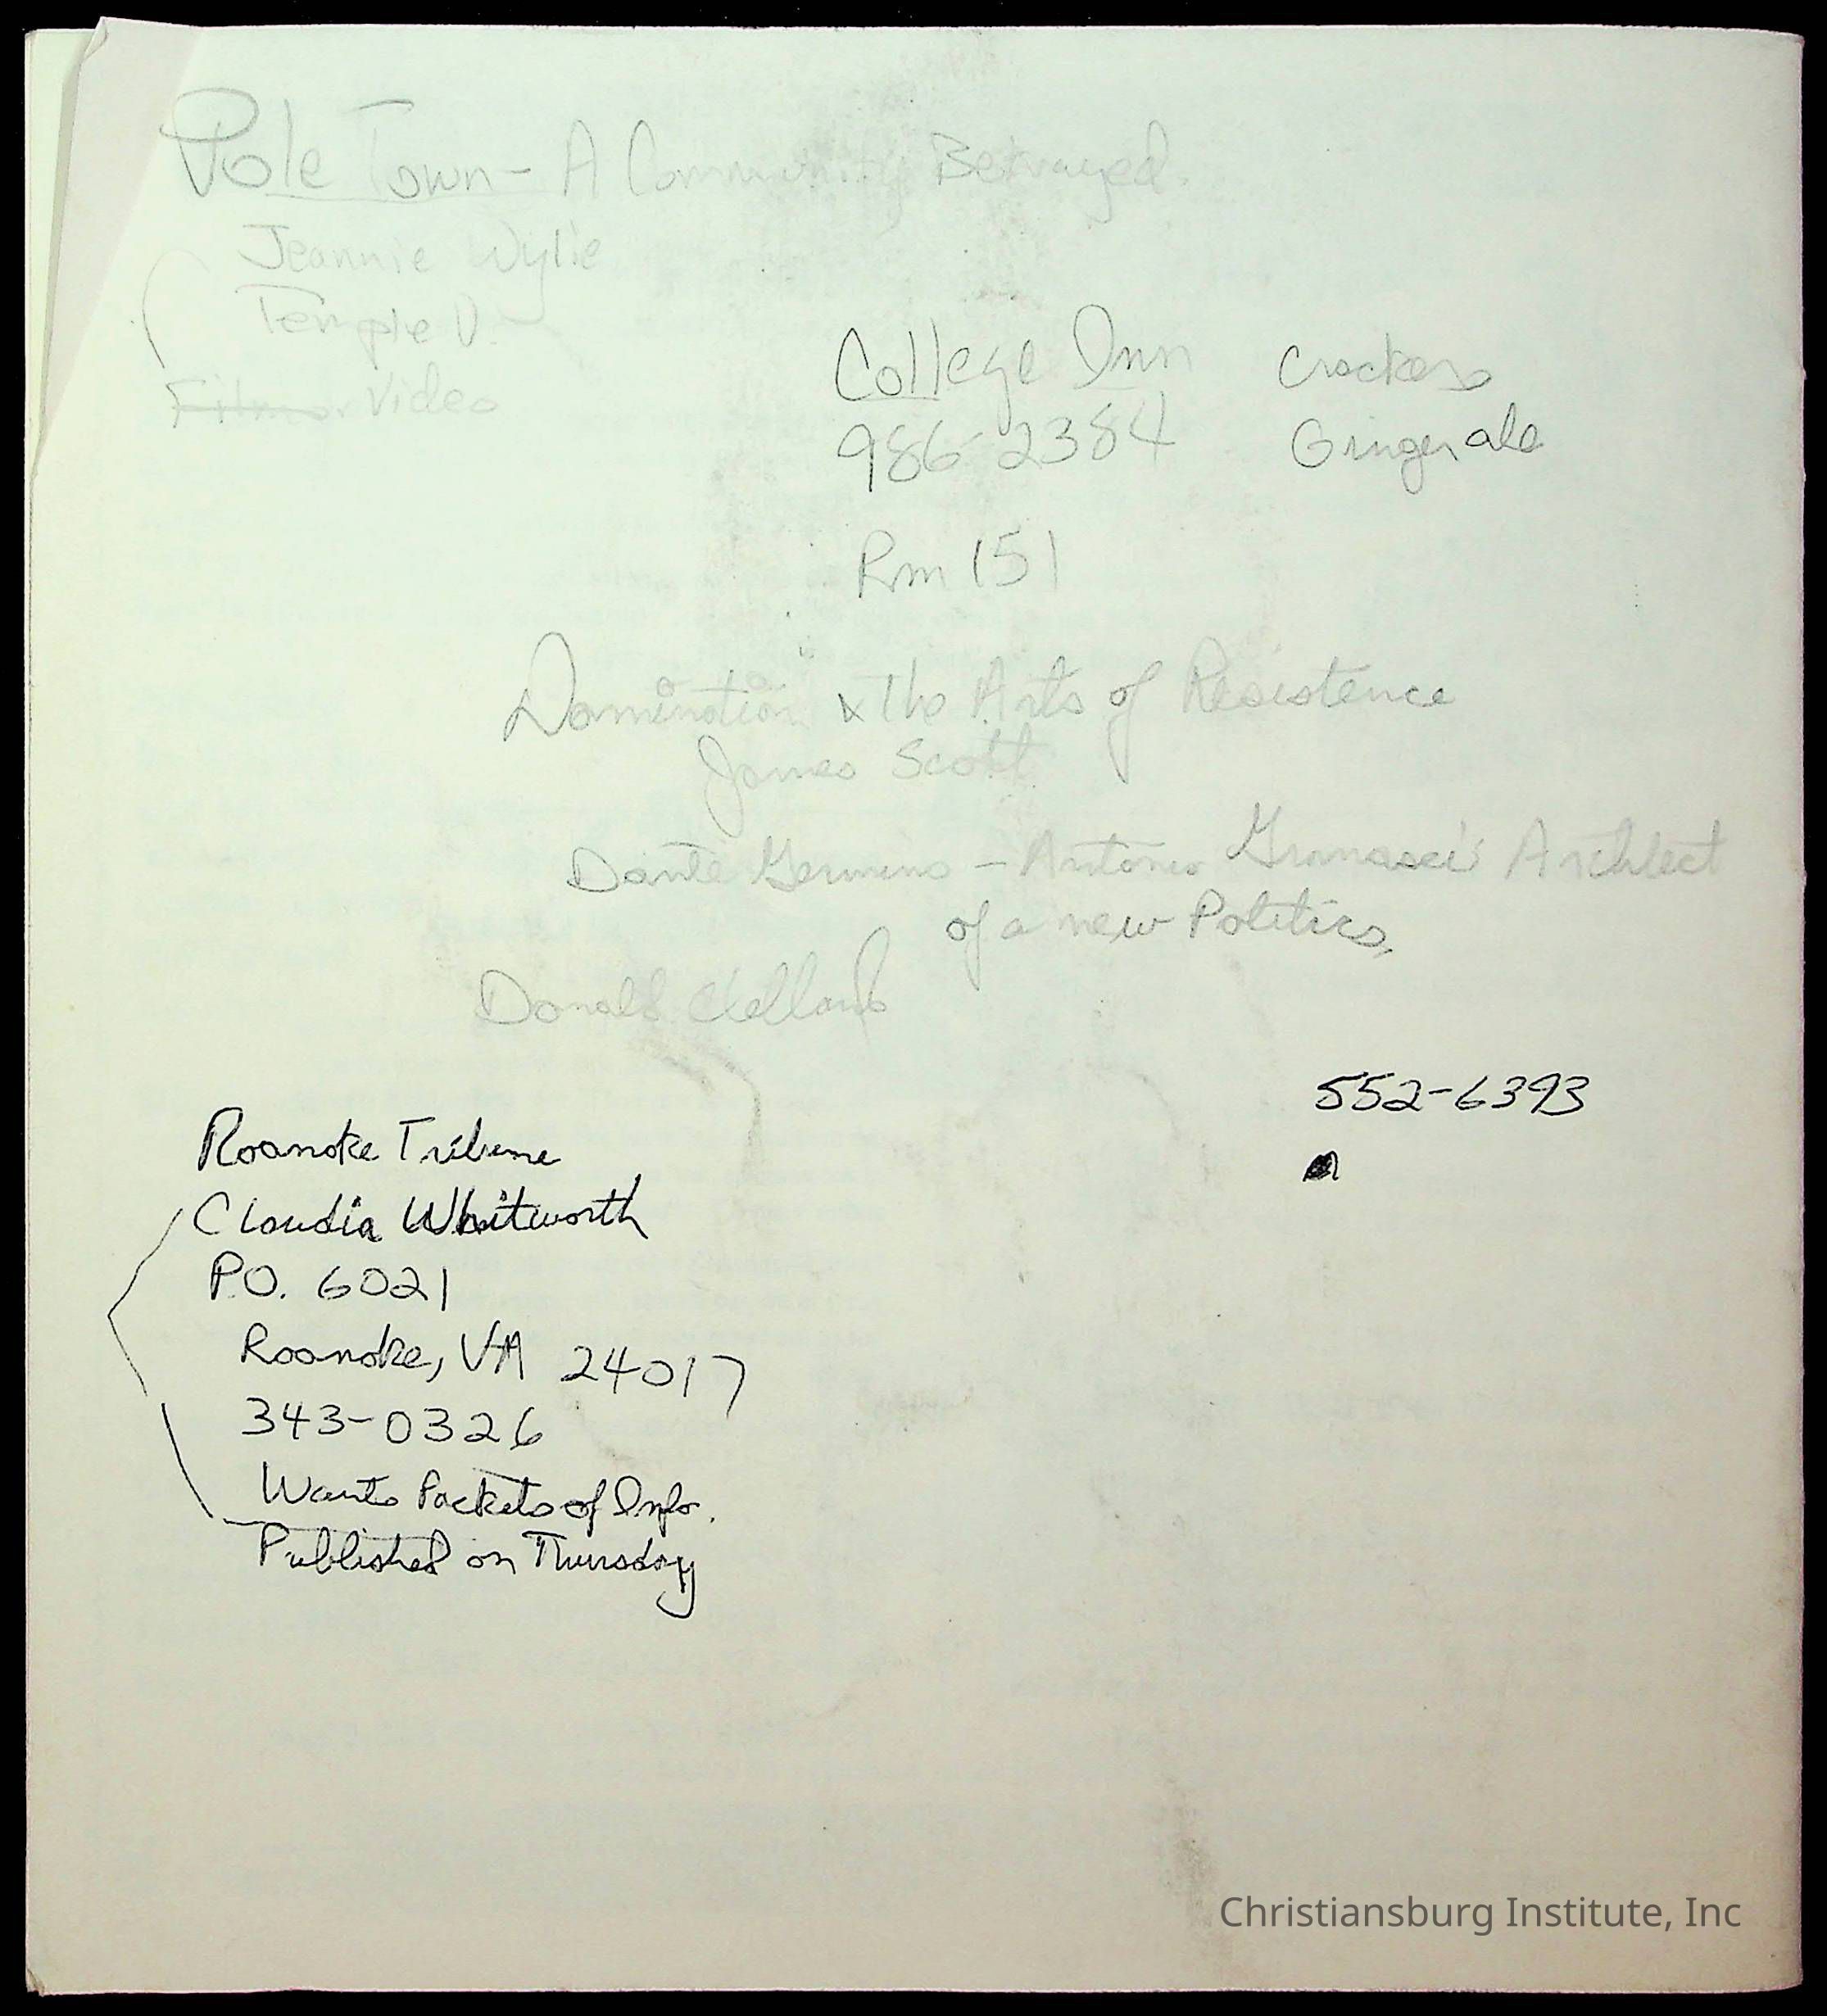 Pole Town - A Community Betrayed.
Jeannie Wylie
Temple U.
Film or Video
College Inn
986-2384
Crackers
Gingerale
Rm 151
Domination & The Arts of Resistence
James Scott
Dante Germino - Antonio Gramsci: Architect
of a new Politics,
Donald Clelland
552-6393
Roanoke Tribune
Claudia Whitworth
P.O. 6021
Roanoke, VA 24017
343-0326
Wants Packets of Info.
Published on Thursday
Christiansburg Institute, Inc